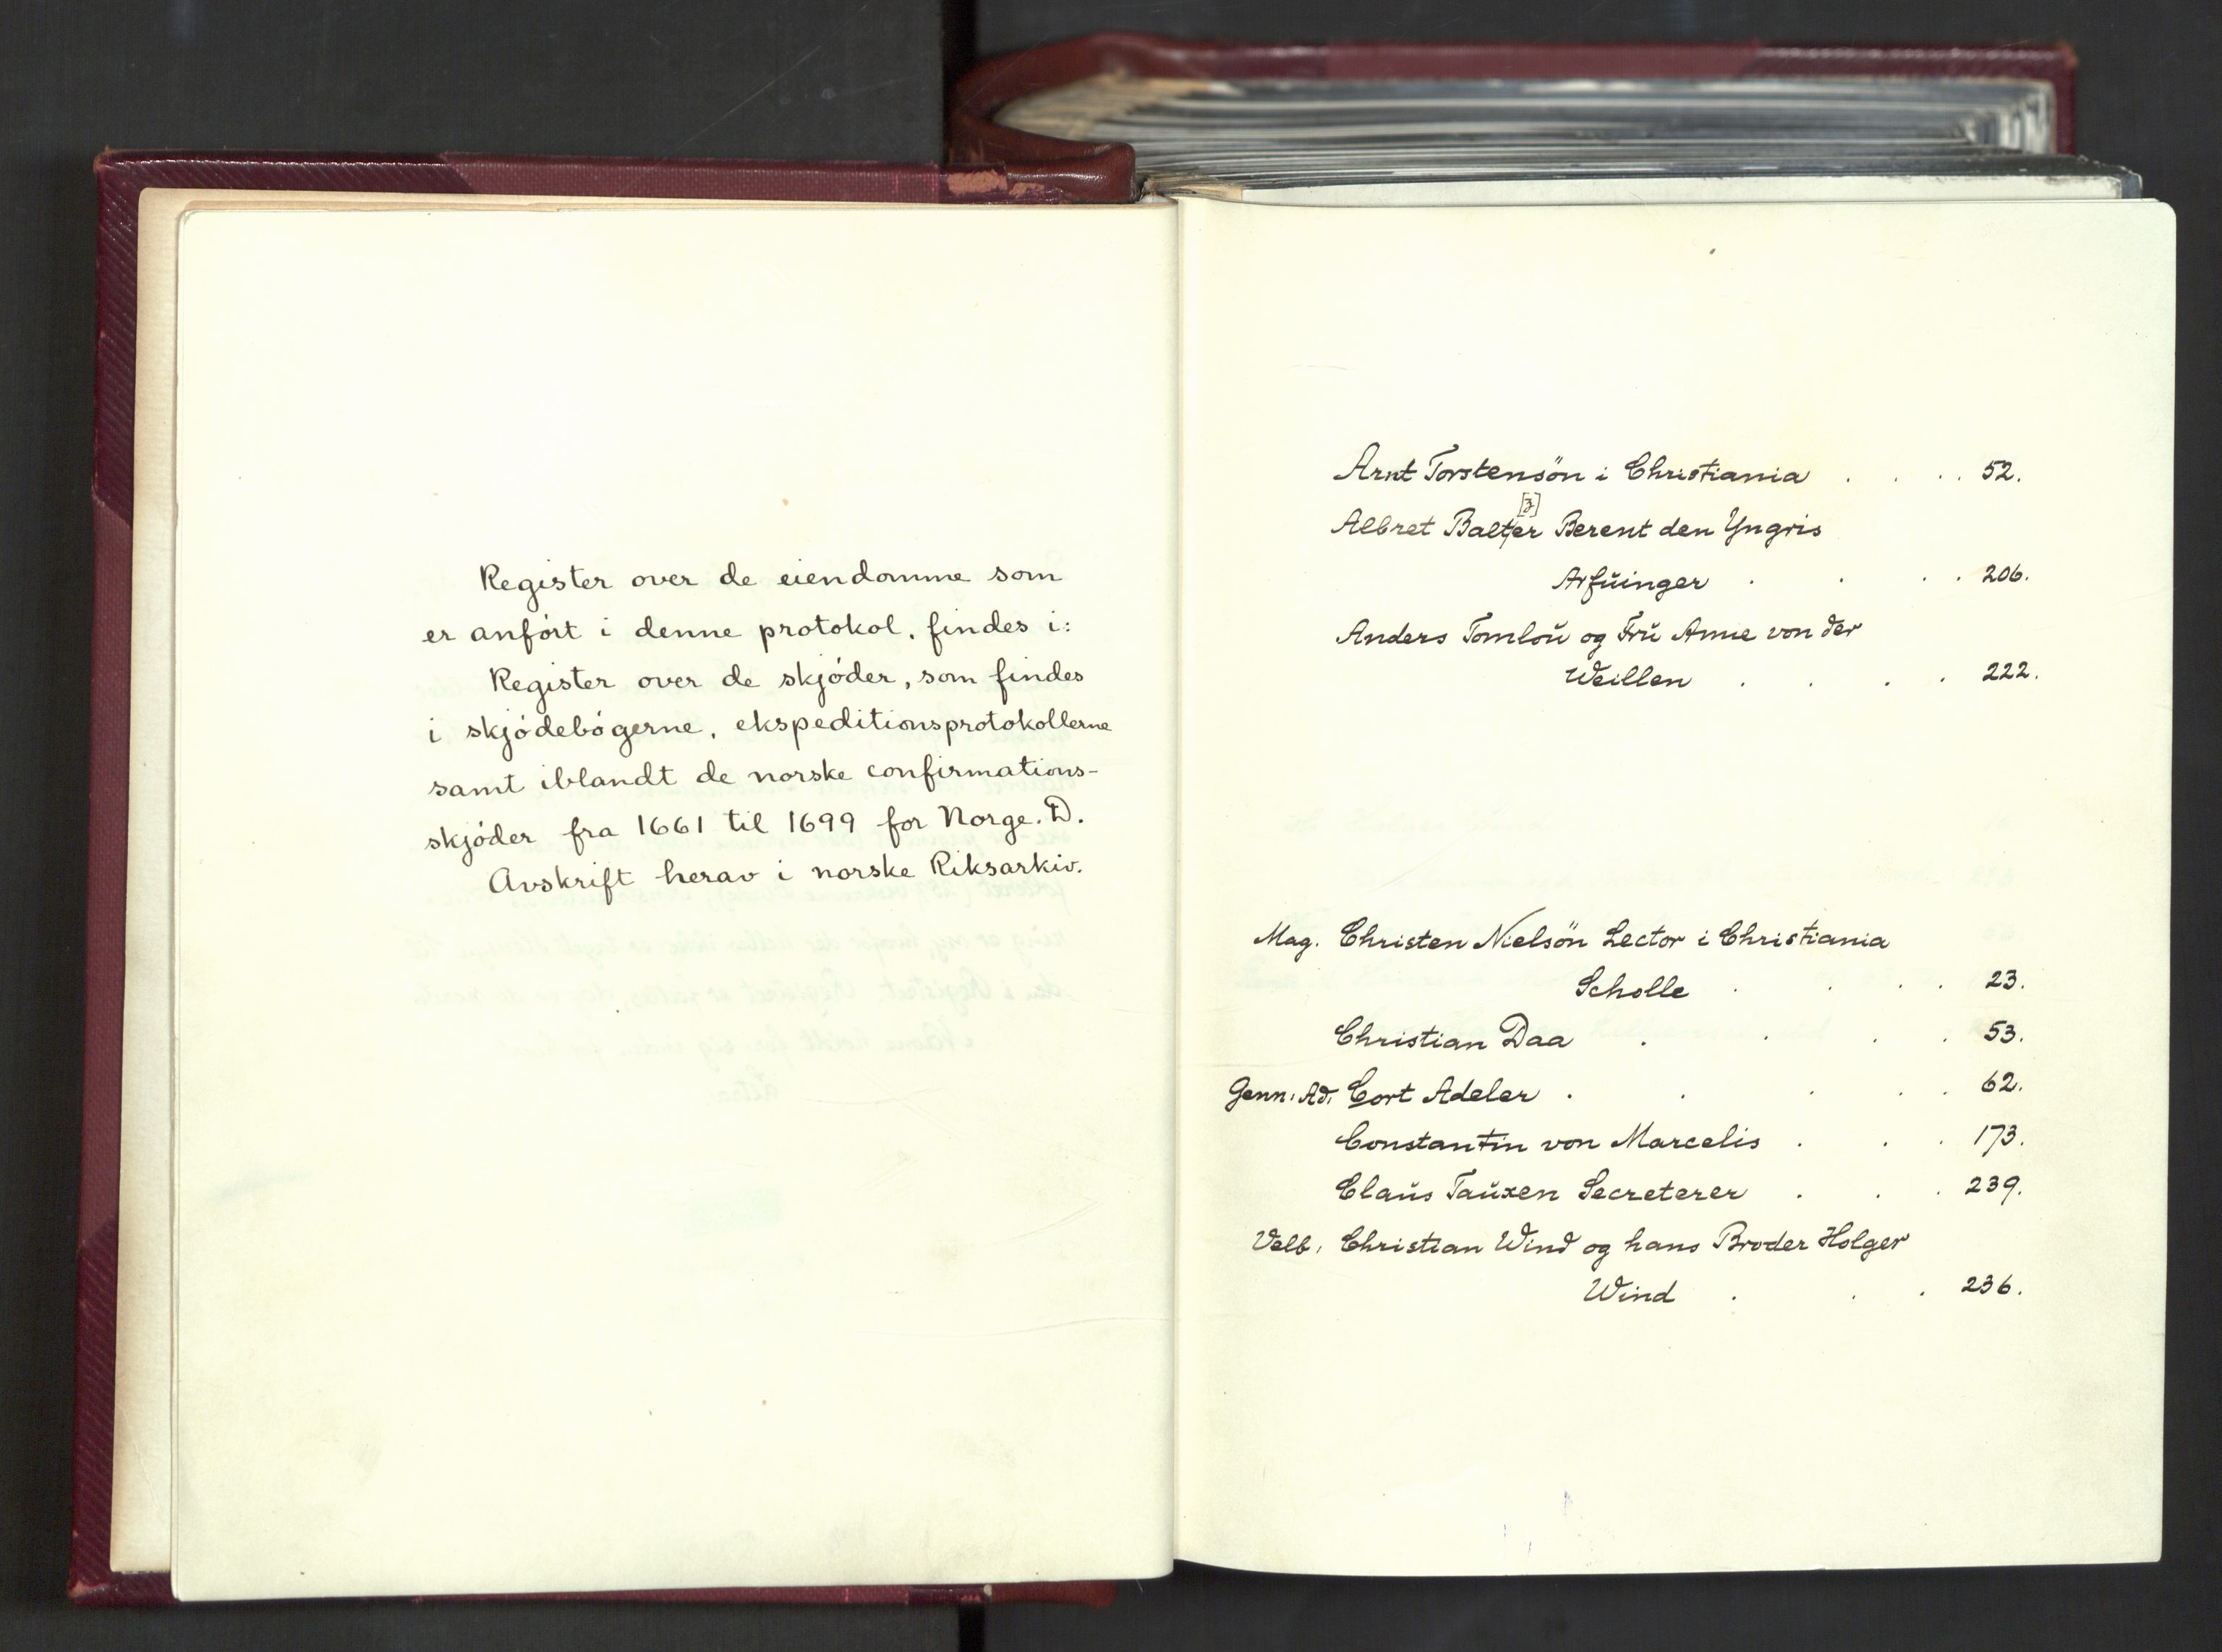 Register over de eiendomme som
er anført i denne protokol, findes i:
Register over de skjøder, som findes
i skjødebøgerne, ekspeditionsprotokollerne
samt iblandt de norske confirmations-
skjøder fra 1661 til 1699 for Norge. D.
Avskrift herav i norske Riksarkiv.
Arnt Torstensön i Christiania . . . . 52.
[z]
Albret Balter Berent den Yngris
Arfŭinger . . . . 206.
Anders Tomloŭ og Frŭ Anne von der
Weillen . . . . 222.
Mag. Christen Nielsön Lector i Christiania
Scholle . . . . 23.
Christian Daa . . . . 53.
Genn: Ad: Cort Adeler . . . . . 62.
Constantin von Marcelis . . . 173.
Claŭs Taŭxen Secreterer . . . 239.
Velb: Christian Wind og hans Broder Holger
Wind . . . 236.